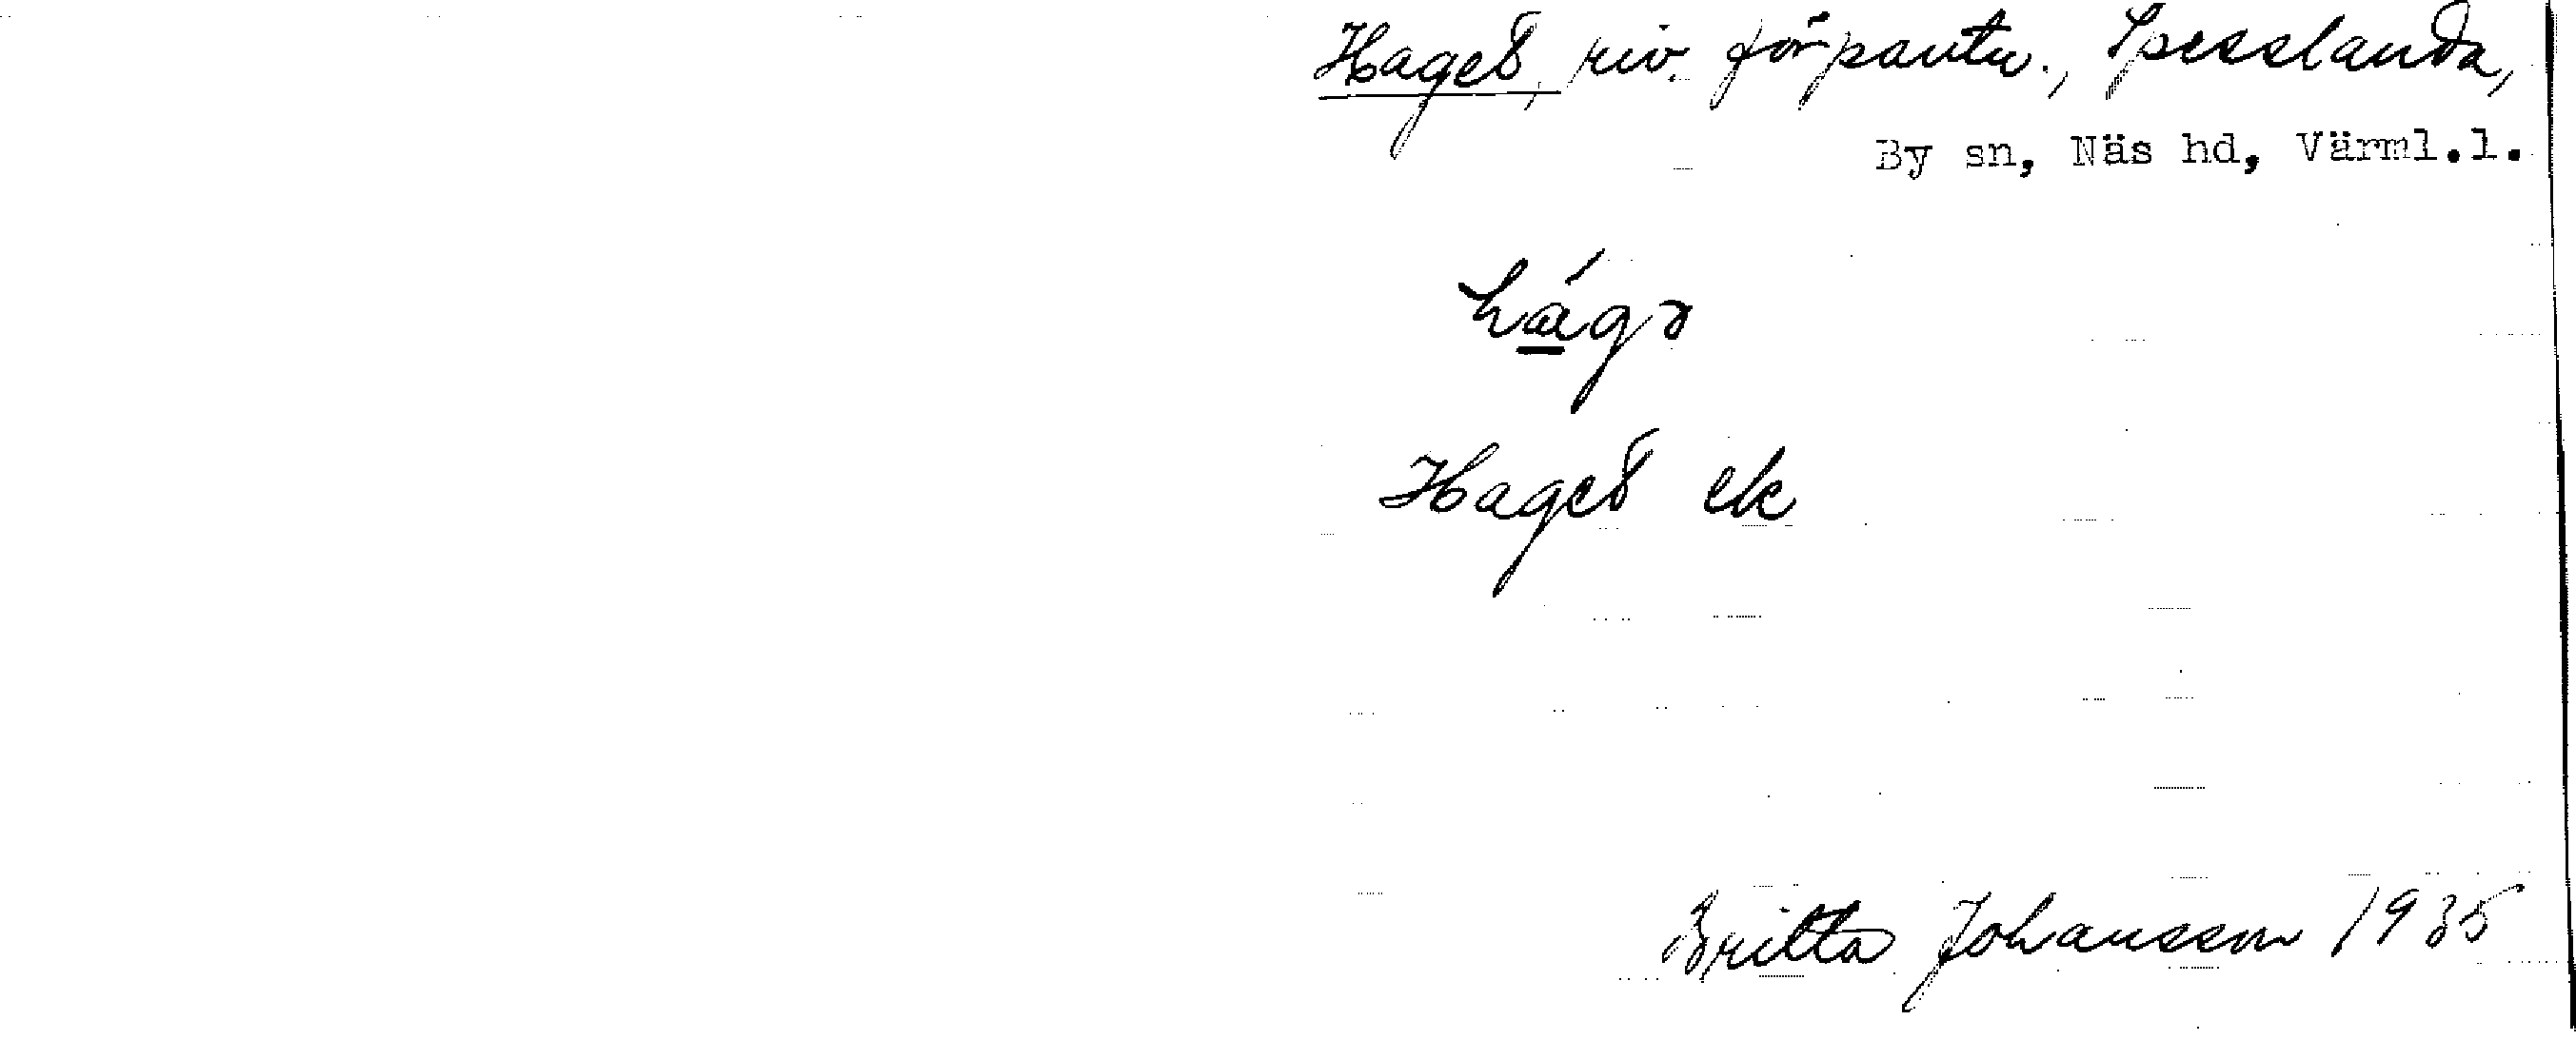 Haget, riv. förpantn., Spesslanda,
By sn, Näs hd, Värml.l.
hág
Haget ek
Britta Johansson 1935